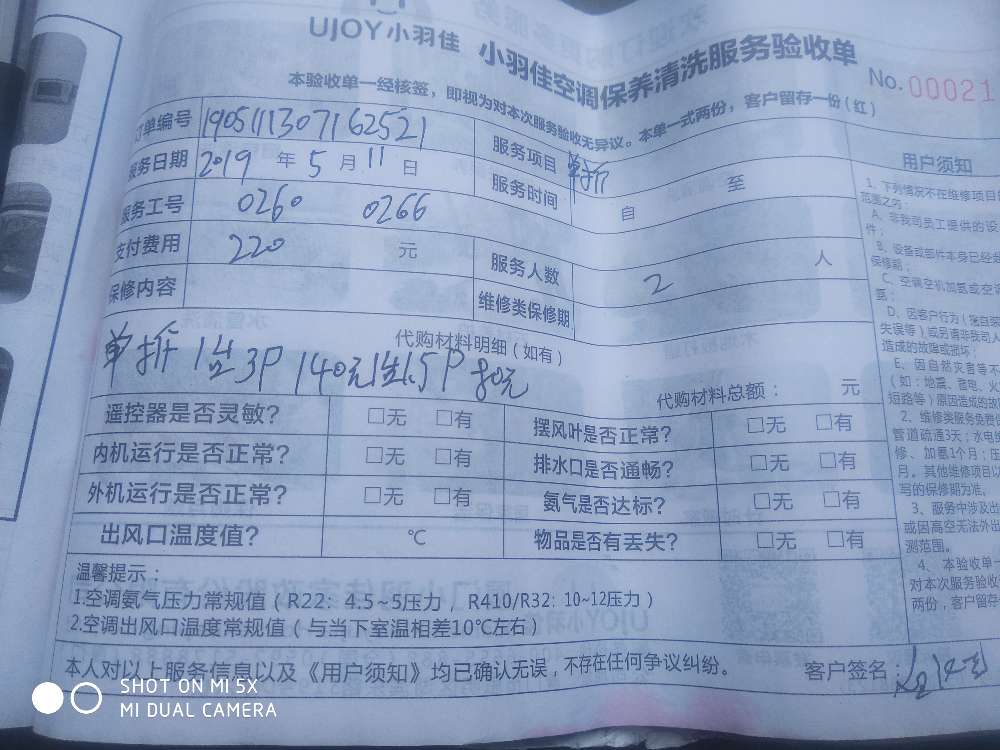 UJOY小羽佳 小羽佳空调保养清洗服务验收单
No. 00021
本验收单一经核签，即视为对本次服务验收无异议。本单一式两份，客户留存一份(红)
订单编号 190511130716252​1 服务项目 单拆
服务日期 2019 年 5 月 11 日 服务时间 自 至
服务工号 0260 0266
支付费用 220 元 服务人数 2 人
保修内容 维修类保修期
代购材料明细（如有）
单拆 1台3P 140元1台1.5P 80元
代购材料总额： 元
遥控器是否灵敏? □无 □有 摆风叶是否正常? □无 □有
内机运行是否正常? □无 □有 排水口是否通畅? □无 □有
外机运行是否正常? □无 □有 氨气是否达标? □无 □有
出风口温度值? ℃ 物品是否有丢失? □无 □有
温馨提示：
1.空调氨气压力常规值（R22：4.5~5压力，R410/R32：10~12压力）
2.空调出风口温度常规值（与当下室温相差10℃左右）
本人对以上服务信息以及《用户须知》均已确认无误，不存在任何争议纠纷。 客户签名：
用户须知
1、下列情况不在维修项目
范围之内：
A、非我司员工提供的设
件；
B、设备或部件本身已经
保修期；
C、空调空机加氨或空调
氨；
D、因客户行为（
失误等）或另请非我司人
造成的故障或损坏；
E、因自然灾害等不
（如：地震、雷电、火
短路等）原因造成的故
2、维修类服务免费
管道疏通3天；水电维
修、加氨1个月；
月。其他维修项目以
写的保修期为准。
3、服务中涉及出
或因高空无法外出
测范围。
4、本验收单一
对本次服务验收
两份，客户留存
SHOT ON MI 5X
MI DUAL CAMERA